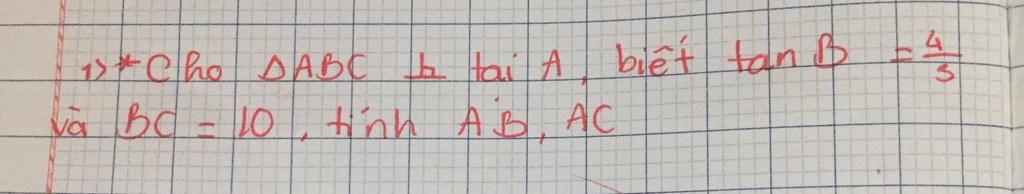 1) * Cho ΔABC ⊥ tại A, biết tan B = 4/5
và BC = 10, tính AB, AC